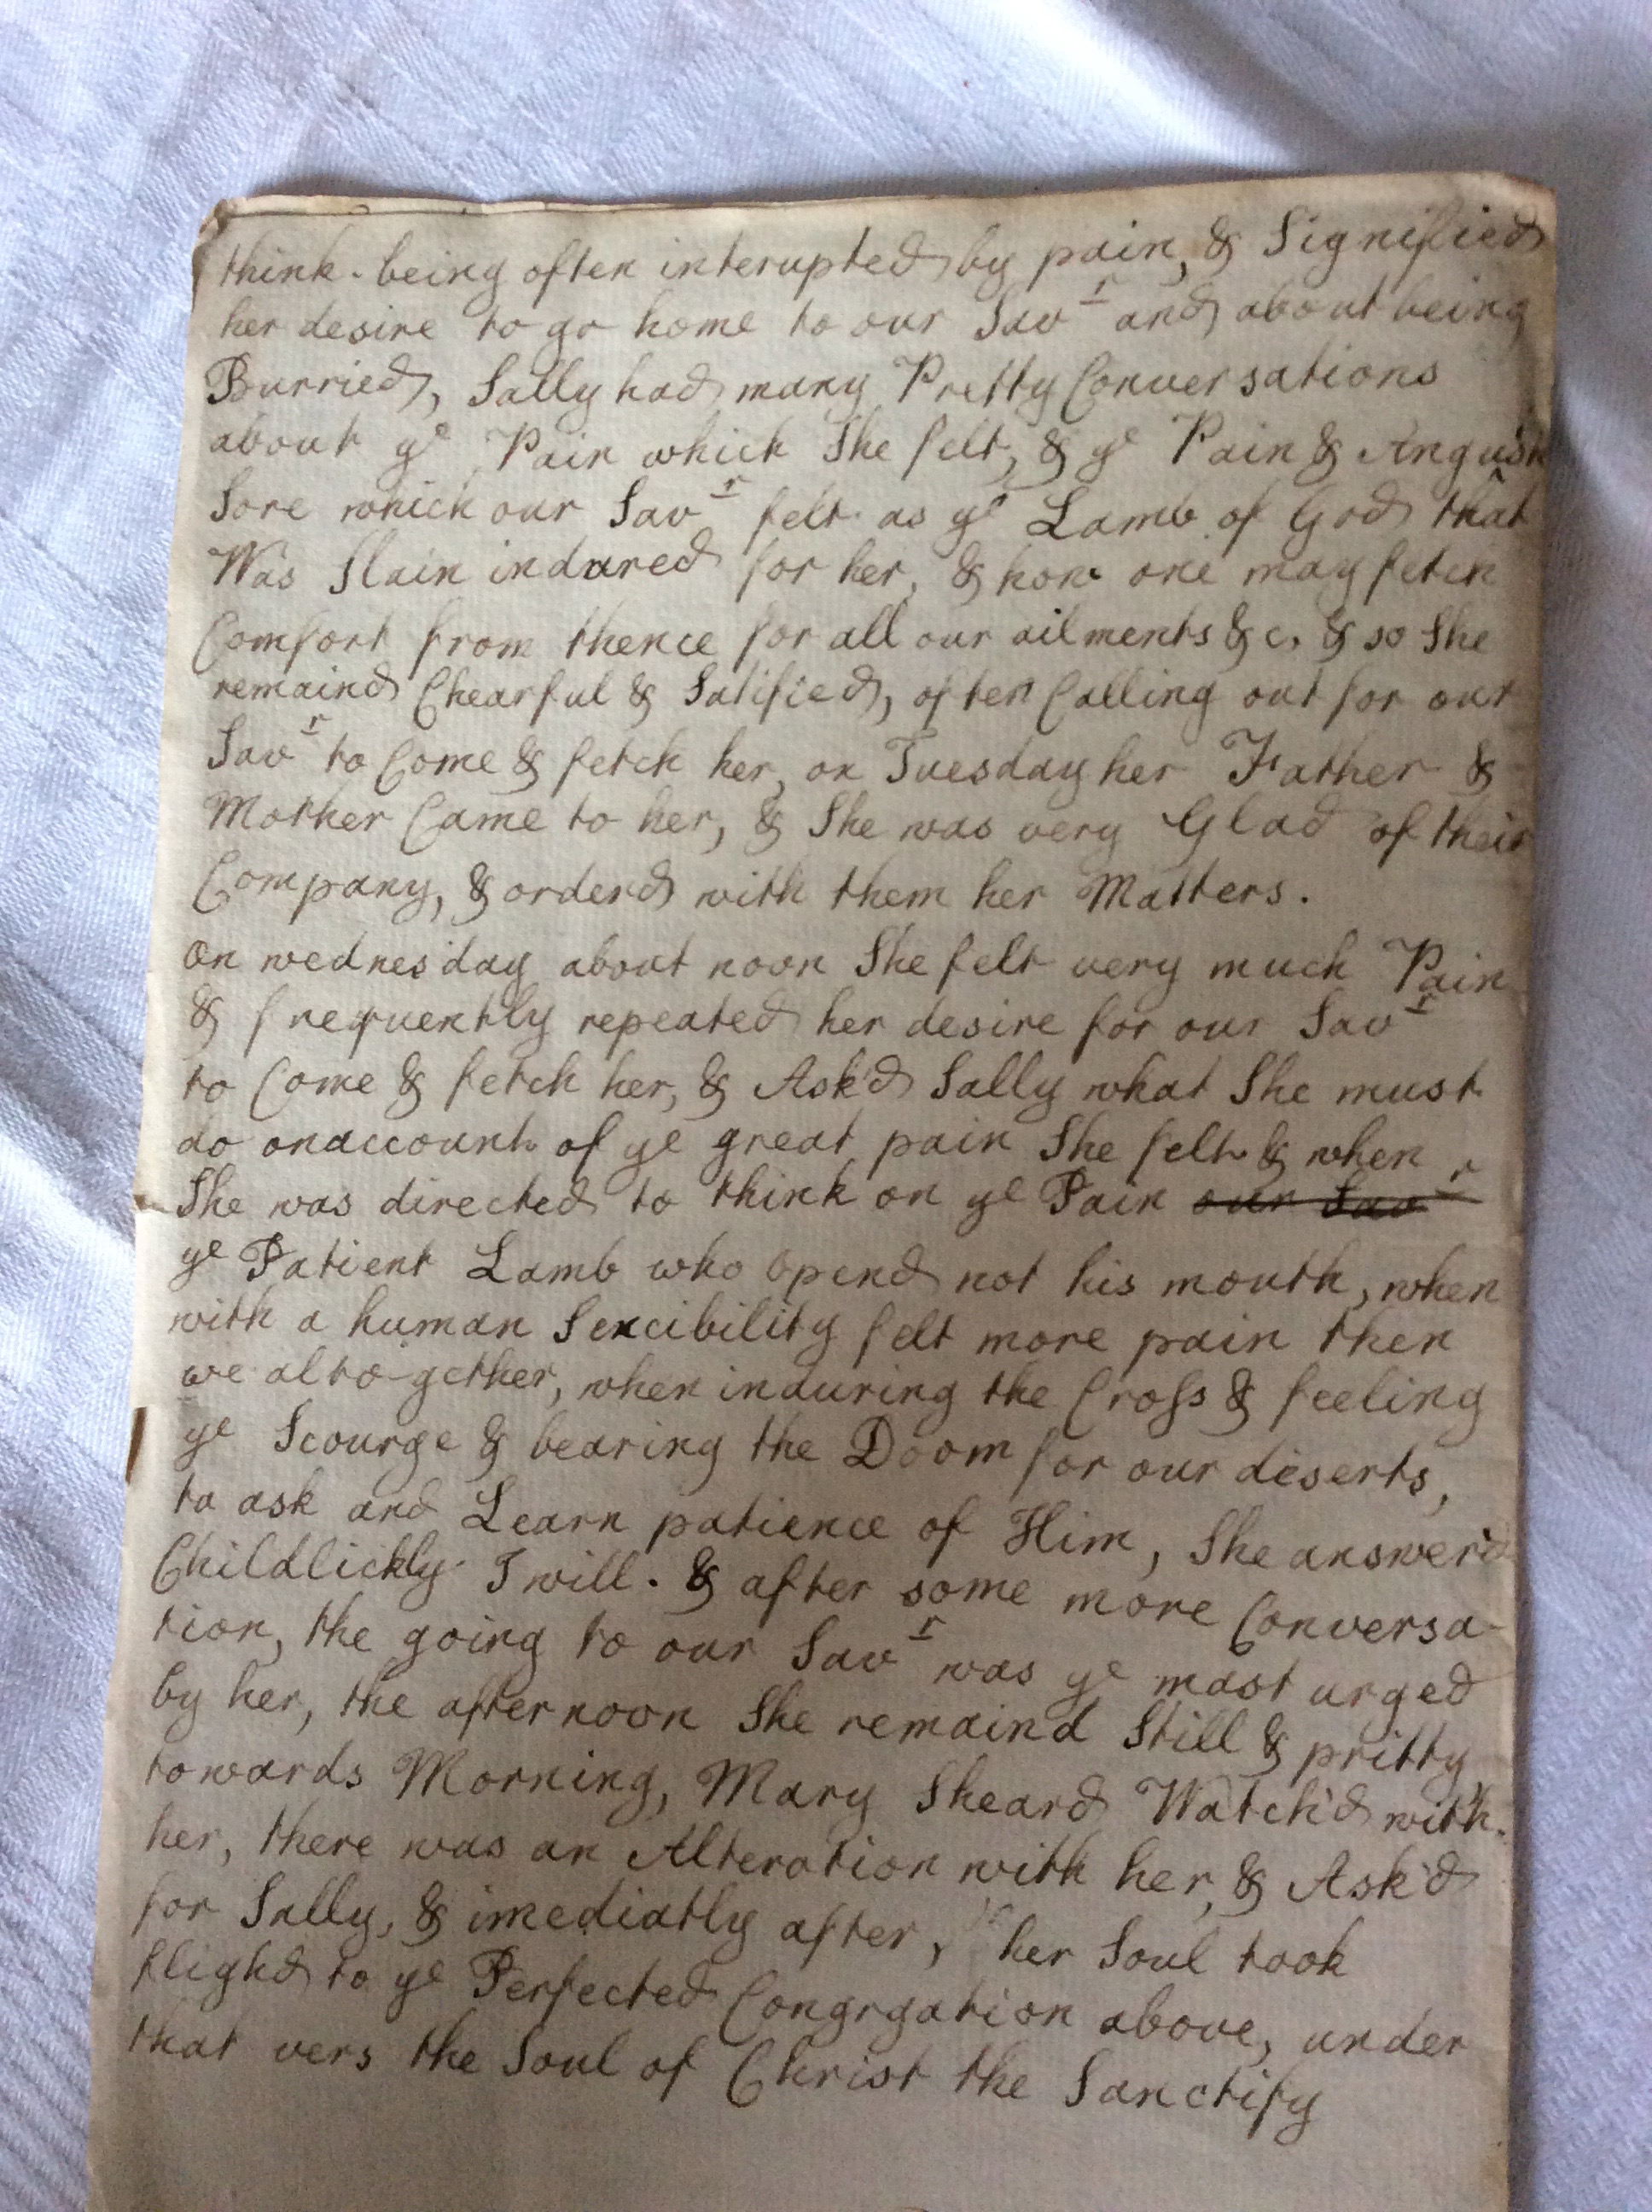 think. being often interupted by pain, & Signified
her desire to go home to our Savr and about being
Burried, Sally had many Pretty Conversations
about ye Pain which She felt, & ye Pain & Angush
Sore which our Savr felt as ye Lamb of God that
Was Slain indured for her, & how one may fetch
Comfort from thence for all our ailments &c. & so She
remaind Chearful & Satified, often Calling out for our
Savr to Come & fetch her, on Tuesday her Father &
Mother Came to her, & She was very Glad of their
Company, & orderd with them her Matters.
On wednesday about noon She felt very much Pain
& frequently repeated her desire for our Savr
to Come & fetch her, & Ask'd Sally what She must
do onaccount of ye great pain She felt & when
She was directed to think on ye Pain our Savr
ye Patient Lamb who opend not his mouth, when
with a human Sencibility felt more pain then
we alto-gether, when induring the Cross & feeling
ye Scourge & bearing the Doom for our diserts,
to ask and Learn patience of Him, She answer'd
Childlickly I will. & after some more Conversa-
tion, the going to our Savr was ye most urged
by her, the afternoon She remaind Still & pritty
towards Morning, Mary Sheard Watch'd with.
her, there was an Alteration with her, & Ask'd
for Sally, & imediatly after, her Soul took
flighd to ye Perfected Congrgation above, under
that vers the Soul of Christ the Sanctify